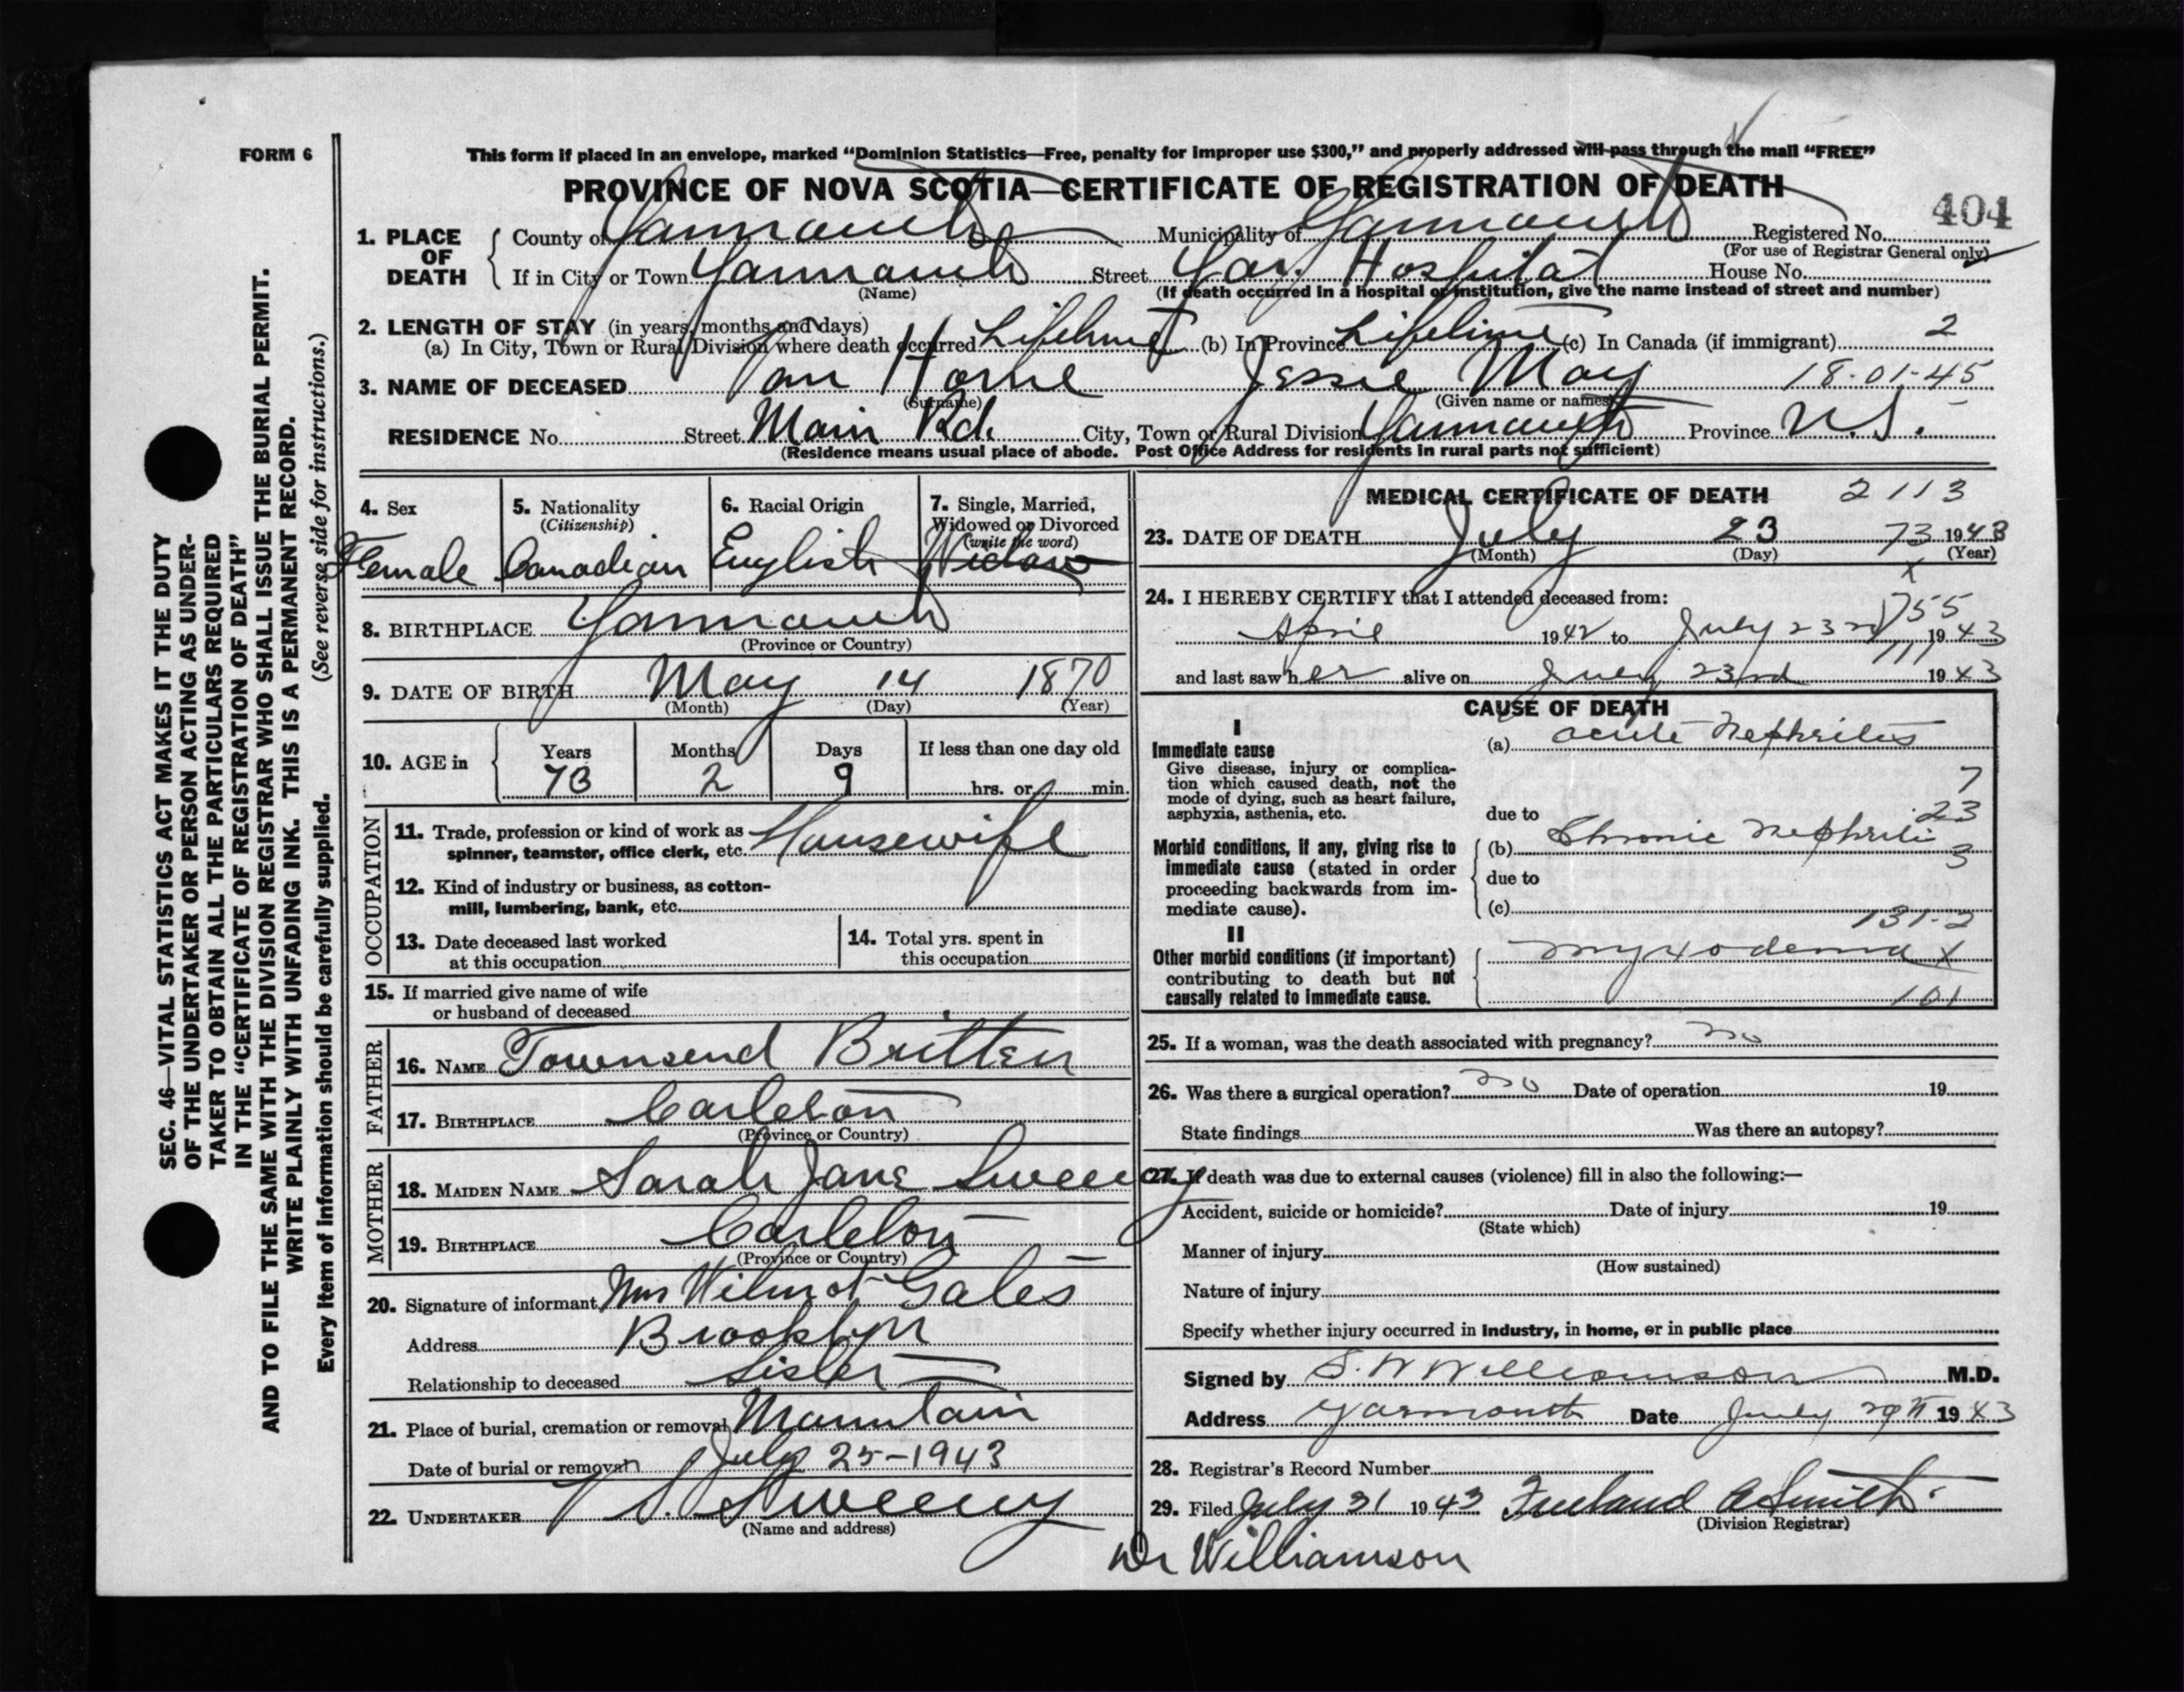 FORM 6
This form if placed in an envelope, marked “Dominion Statistics—Free, penalty for improper use $300,” and properly addressed will pass through the mail “FREE”
PROVINCE OF NOVA SCOTIA—CERTIFICATE OF REGISTRATION OF DEATH
404
1. PLACE OF DEATH
County of Yarmouth Municipality of Yarmouth Registered No.
(For use of Registrar General only)
If in City or Town Yarmouth Street Yar. Hospital House No.
(Name) (If death occurred in a hospital or institution, give the name instead of street and number)
2. LENGTH OF STAY (in years, months and days)
(a) In City, Town or Rural Division where death occurred Lifetime (b) In Province Lifetime (c) In Canada (if immigrant) 2
3. NAME OF DECEASED Van Horne Jessie May 18-01-45
(Surname) (Given name or names)
RESIDENCE No. Street Main Rd. City, Town or Rural Division Yarmouth Province N.S.
(Residence means usual place of abode. Post Office Address for residents in rural parts not sufficient)
4. Sex Female
5. Nationality (Citizenship) Canadian
6. Racial Origin English
7. Single, Married, Widowed or Divorced (write the word) Widow
8. BIRTHPLACE Yarmouth
(Province or Country)
9. DATE OF BIRTH May 14 1870
(Month) (Day) (Year)
10. AGE in Years Months Days If less than one day old
73 2 9 hrs. or min.
OCCUPATION
11. Trade, profession or kind of work as spinner, teamster, office clerk, etc. Housewife
12. Kind of industry or business, as cotton-mill, lumbering, bank, etc.
13. Date deceased last worked at this occupation
14. Total yrs. spent in this occupation
15. If married give name of wife or husband of deceased
FATHER
16. NAME Townsend Britten
17. BIRTHPLACE Carleton
(Province or Country)
MOTHER
18. MAIDEN NAME Sarah Jane Sweeney
19. BIRTHPLACE Carleton
(Province or Country)
20. Signature of informant Mrs Wilmot Gales
Address Brooklyn
Relationship to deceased Sister
21. Place of burial, cremation or removal Mountain
Date of burial or removal July 25-1943
22. UNDERTAKER V. S. Sweeny
(Name and address)
MEDICAL CERTIFICATE OF DEATH 2113
23. DATE OF DEATH July 23 73 1943
(Month) (Day) (Year)
x
24. I HEREBY CERTIFY that I attended deceased from:
755
April 1942 to July 23rd 1943
111
and last saw her alive on July 23rd 1943
CAUSE OF DEATH
I
Immediate cause (a) acute Nephritis
Give disease, injury or complication which caused death, not the mode of dying, such as heart failure, asphyxia, asthenia, etc.
7
23
due to
Morbid conditions, if any, giving rise to immediate cause (stated in order proceeding backwards from immediate cause).
(b) Chronic Nephriti
3
due to
(c)
131-2
II
Other morbid conditions (if important) contributing to death but not causally related to immediate cause.
myxodema x
101
25. If a woman, was the death associated with pregnancy? no
26. Was there a surgical operation? no Date of operation 19
State findings Was there an autopsy?
27. If death was due to external causes (violence) fill in also the following:—
Accident, suicide or homicide? Date of injury 19
(State which)
Manner of injury
(How sustained)
Nature of injury
Specify whether injury occurred in industry, in home, or in public place
Signed by S. W Williamson M.D.
Address Yarmouth Date July 29th 1943
28. Registrar's Record Number
29. Filed July 31 1943 Freeland A Smith
(Division Registrar)
Dr Williamson
SEC. 46—VITAL STATISTICS ACT MAKES IT THE DUTY
OF THE UNDERTAKER OR PERSON ACTING AS UNDER-
TAKER TO OBTAIN ALL THE PARTICULARS REQUIRED
IN THE “CERTIFICATE OF REGISTRATION OF DEATH”
AND TO FILE THE SAME WITH THE DIVISION REGISTRAR WHO SHALL ISSUE THE BURIAL PERMIT.
WRITE PLAINLY WITH UNFADING INK. THIS IS A PERMANENT RECORD.
Every item of information should be carefully supplied. (See reverse side for instructions.)